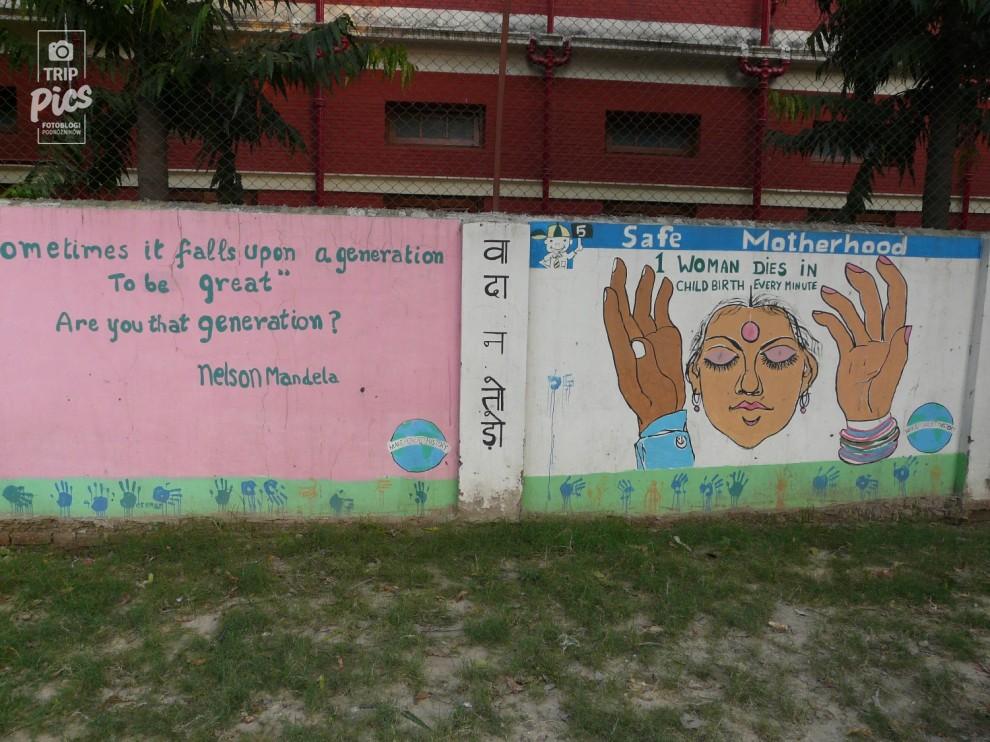 TRIP
Pics
FOTOBLOGI
PODRÓŻNIKÓW
ometimes it falls upon a generation
To be great"
Are you that generation?
Nelson Mandela
वादा न तोड़ो
5
Safe Motherhood
1 WOMAN DIES IN
CHILD BIRTH EVERY MINUTE